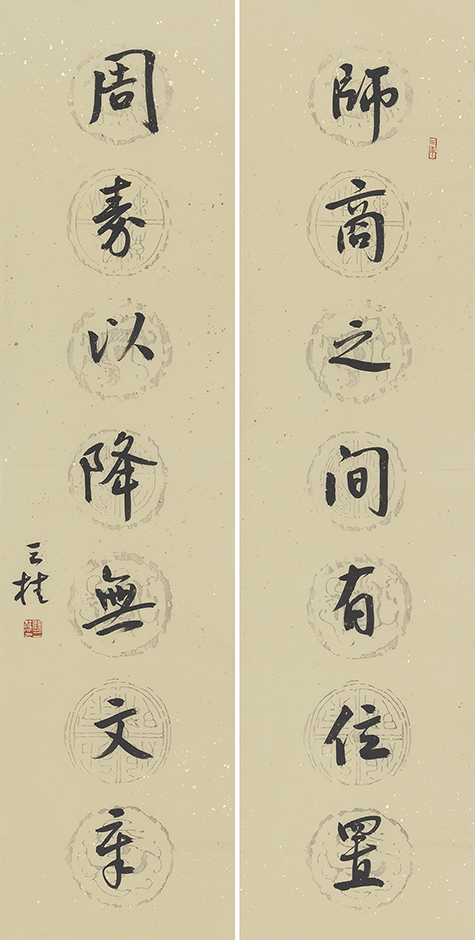 師商之间有位置
周秦以降無文章
桂